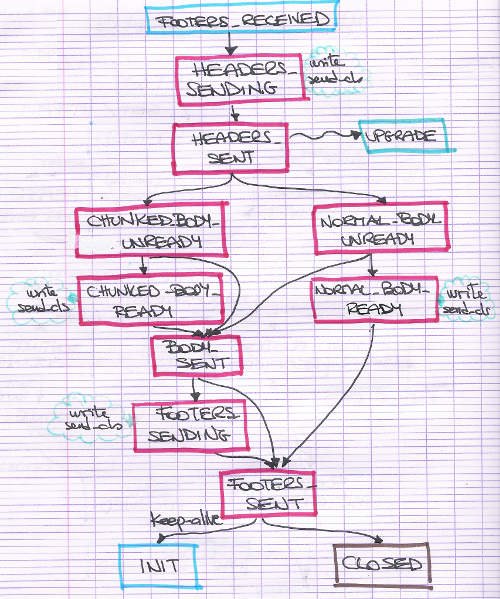 FOOTERS_RECEIVED
HEADERS_
SENDING
write
send_cls
HEADERS_
SENT
UPGRADE
CHUNKED_BODY_
UNREADY
NORMAL_BODY
UNREADY
write
send_cls
CHUNKED_BODY_
READY
NORMAL_BODY_
READY
write
send_cls
BODY_
SENT
write
send_cls
FOOTERS_
SENDING
FOOTERS_
SENT
keep-alive
INIT
CLOSED